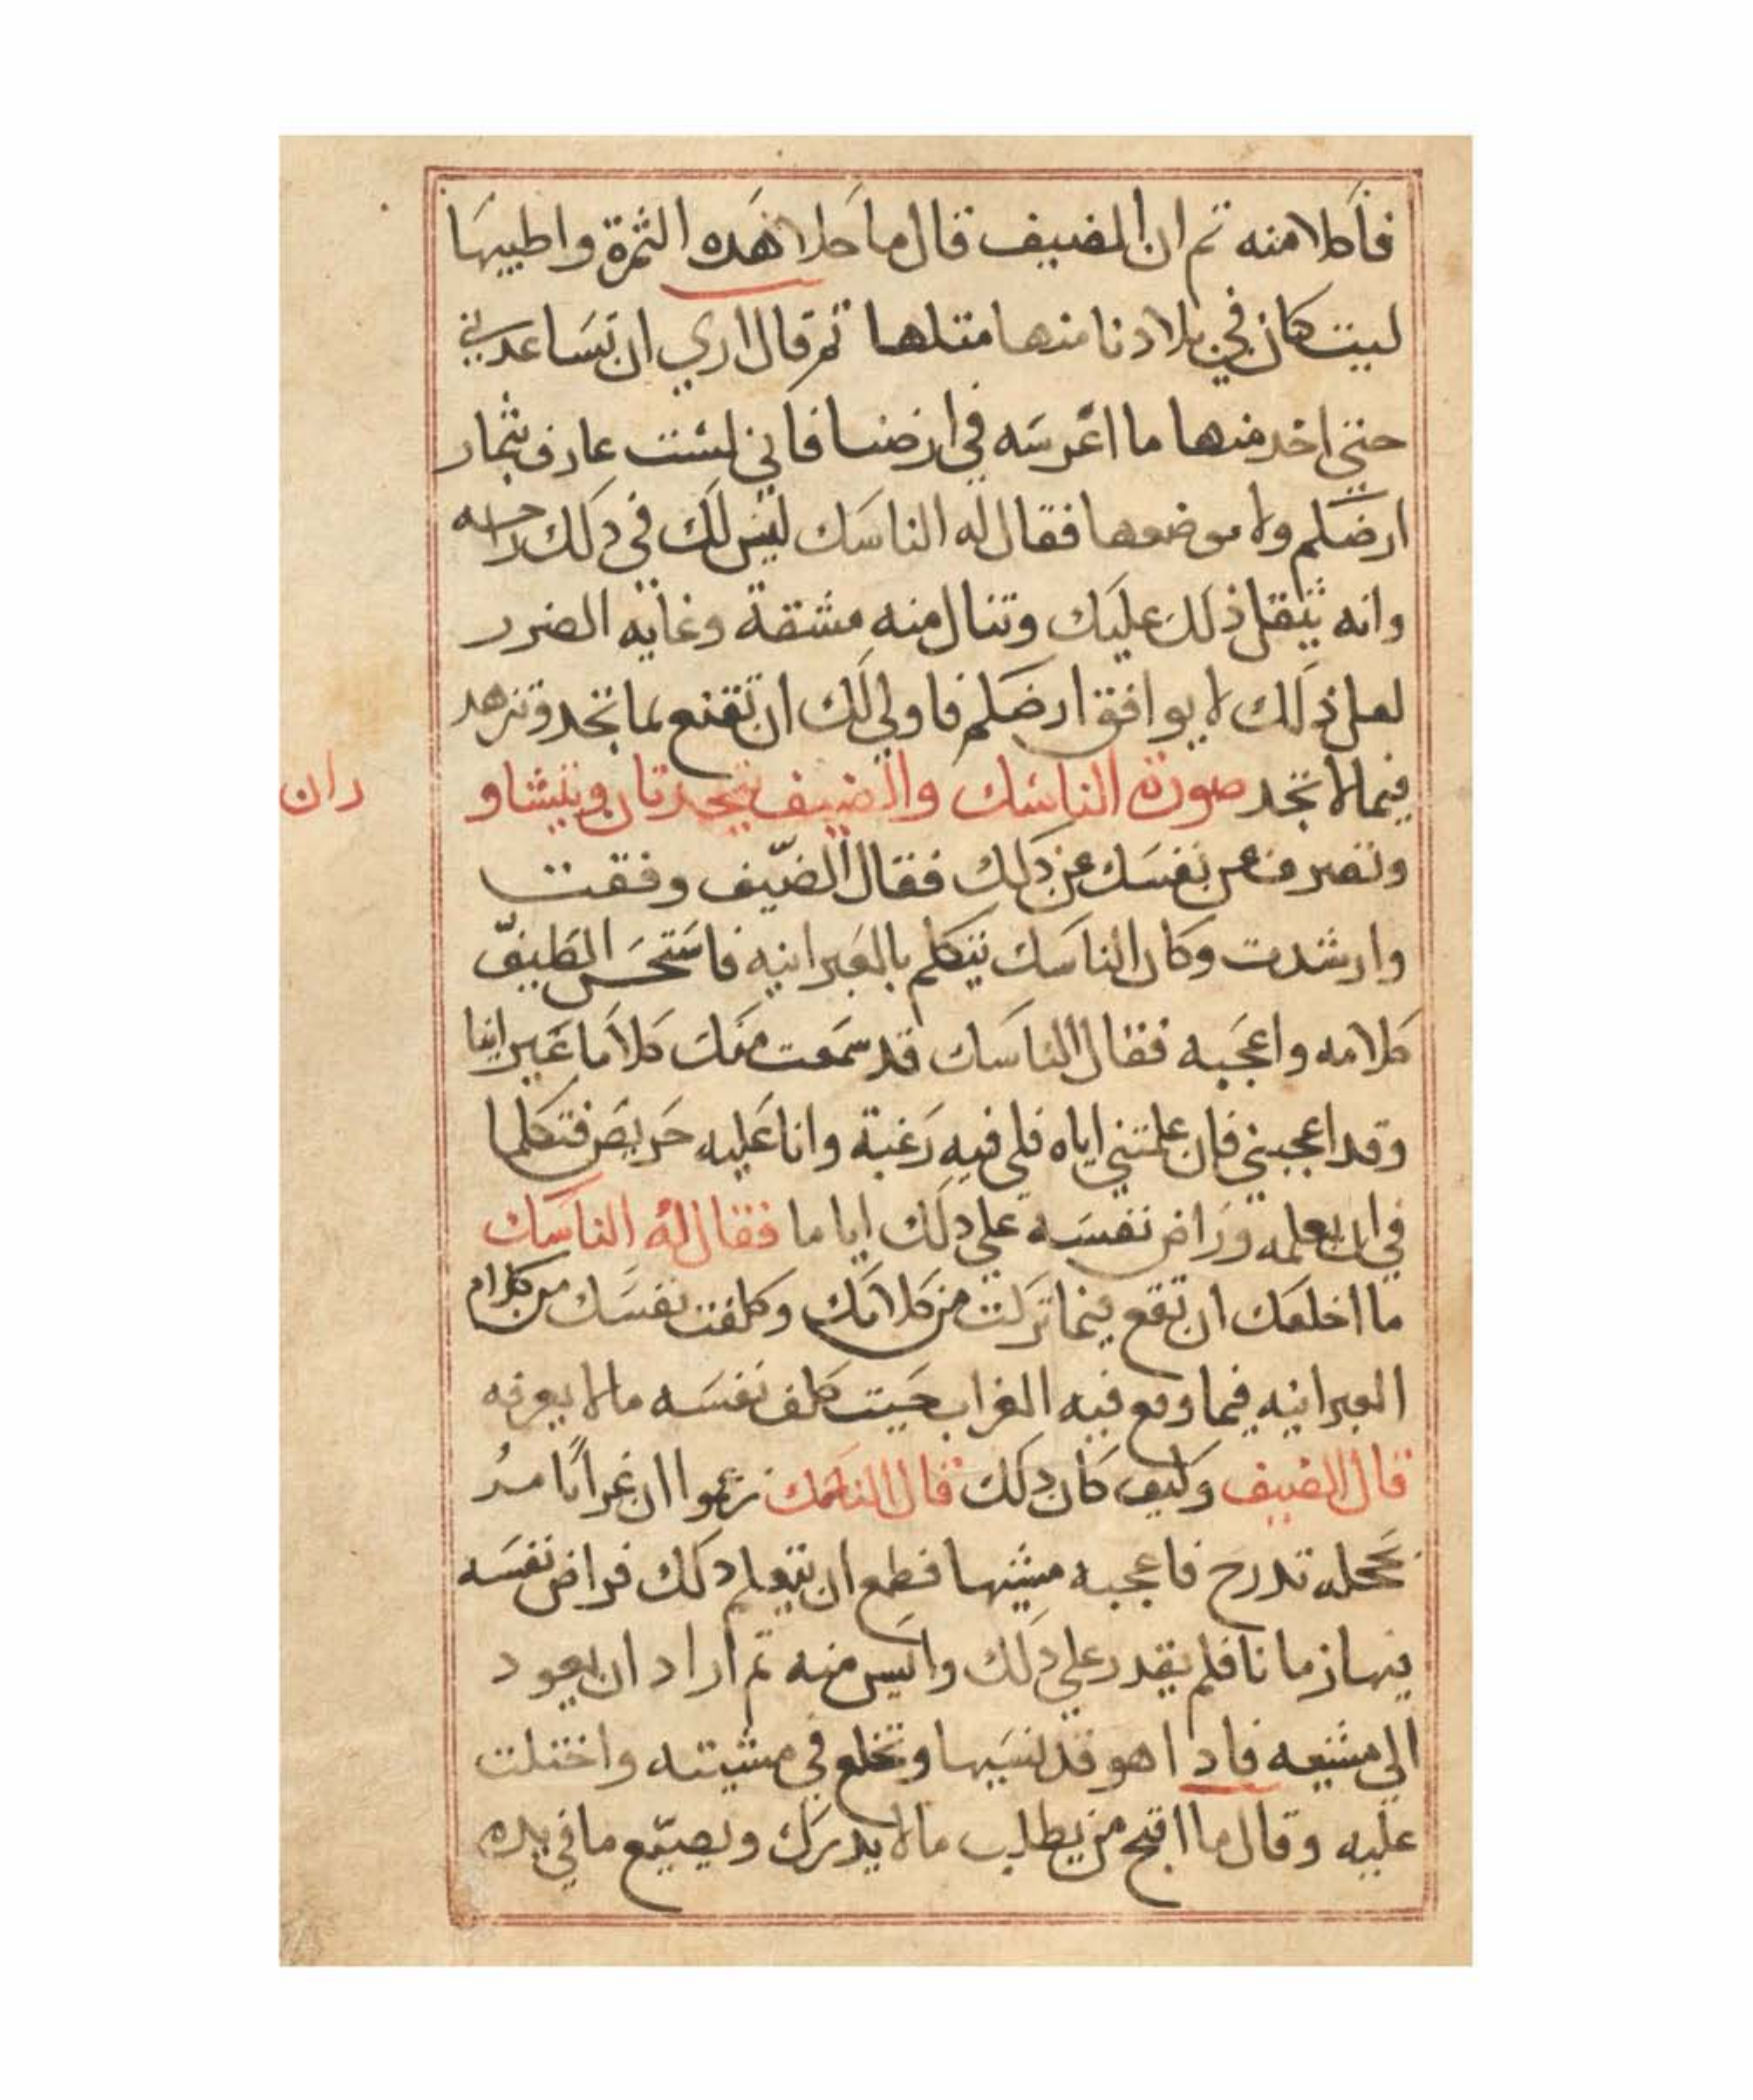 فأكلا منه تم ان الضيف قال ما احلا هده الثمرة واطيبها
ليت كان في بلادنا منها متلها تم قال اري ان تساعدني
حتي اخد منها ما اغرسه في ارضنا فاني لست عارف بثمار
ارضكم ولا موضعها فقال له الناسك ليس لك في دلك راحه
وانه يثقل ذلك عليك وتنال منه مشقة وغايه الضرر
لعل ذلك لا يوافق ارضكم فاولي لك ان تقنع بما تجد وتزهد
فيما لا تجد صورة الناسك والضيف يتحدتان ويتشاو
ران
وتصرف عن نفسك عن دلك فقال الضيف وفقت
وارشدت وكان الناسك يتكلم بالعبرانيه فاستحسن الضيف
كلامه واعجبه فقال الناسك قد سمعت منك كلاما عبرانيا
وقد اعجبني فان علمتني اياه فلي فيه رغبة وانا عليه حريص فتكلما
في ان يعلمه وراض نفسه علي دلك اياما فقال له الناسك
ما اخلقك ان تقع فيما تركت من كلامك وكلفت نفسك من كلام
العبرانيه فيما وقع فيه الغراب حيت كلف نفسه ما لا يعرفه
قال الضيف وكيف كان دلك قال الناسك زعموا ان غرابا مر
بحجله تدرج فاعجبه مشيتها فطمع ان يتعلم دلك فراض نفسه
فيها زمانا فلم يقدر علي دلك وايس منه تم اراد ان يعود
الي مشيه فادا هو قد نسيها وتخلع في مشيته واختلت
عليه وقال ما اقبح من يطلب ما لا يدرك ويضيّع ما في يده